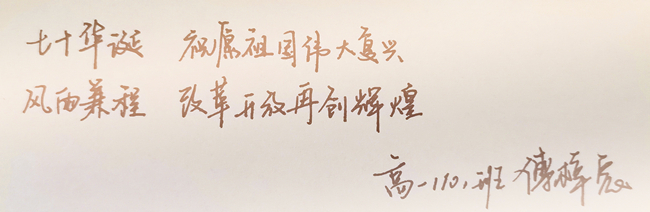 七十华诞 祝愿祖国伟大复兴
风雨兼程 改革开放再创辉煌
高一110,班 傅梓